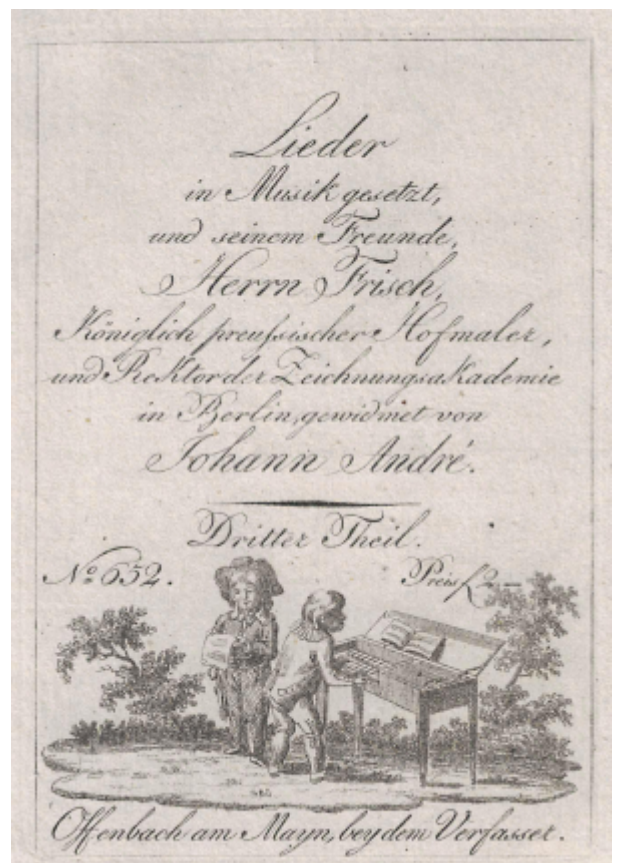 Lieder
in Musik gesetzt,
und seinem Freunde,
Herrn Frisch,
Königlich preußischer Hofmaler,
und Rektor der Zeichnungsakademie
in Berlin, gewidmet von
Johann André.
Dritter Theil.
No. 652. Preis f 2.—
Offenbach am Mayn, bey dem Verfasser.